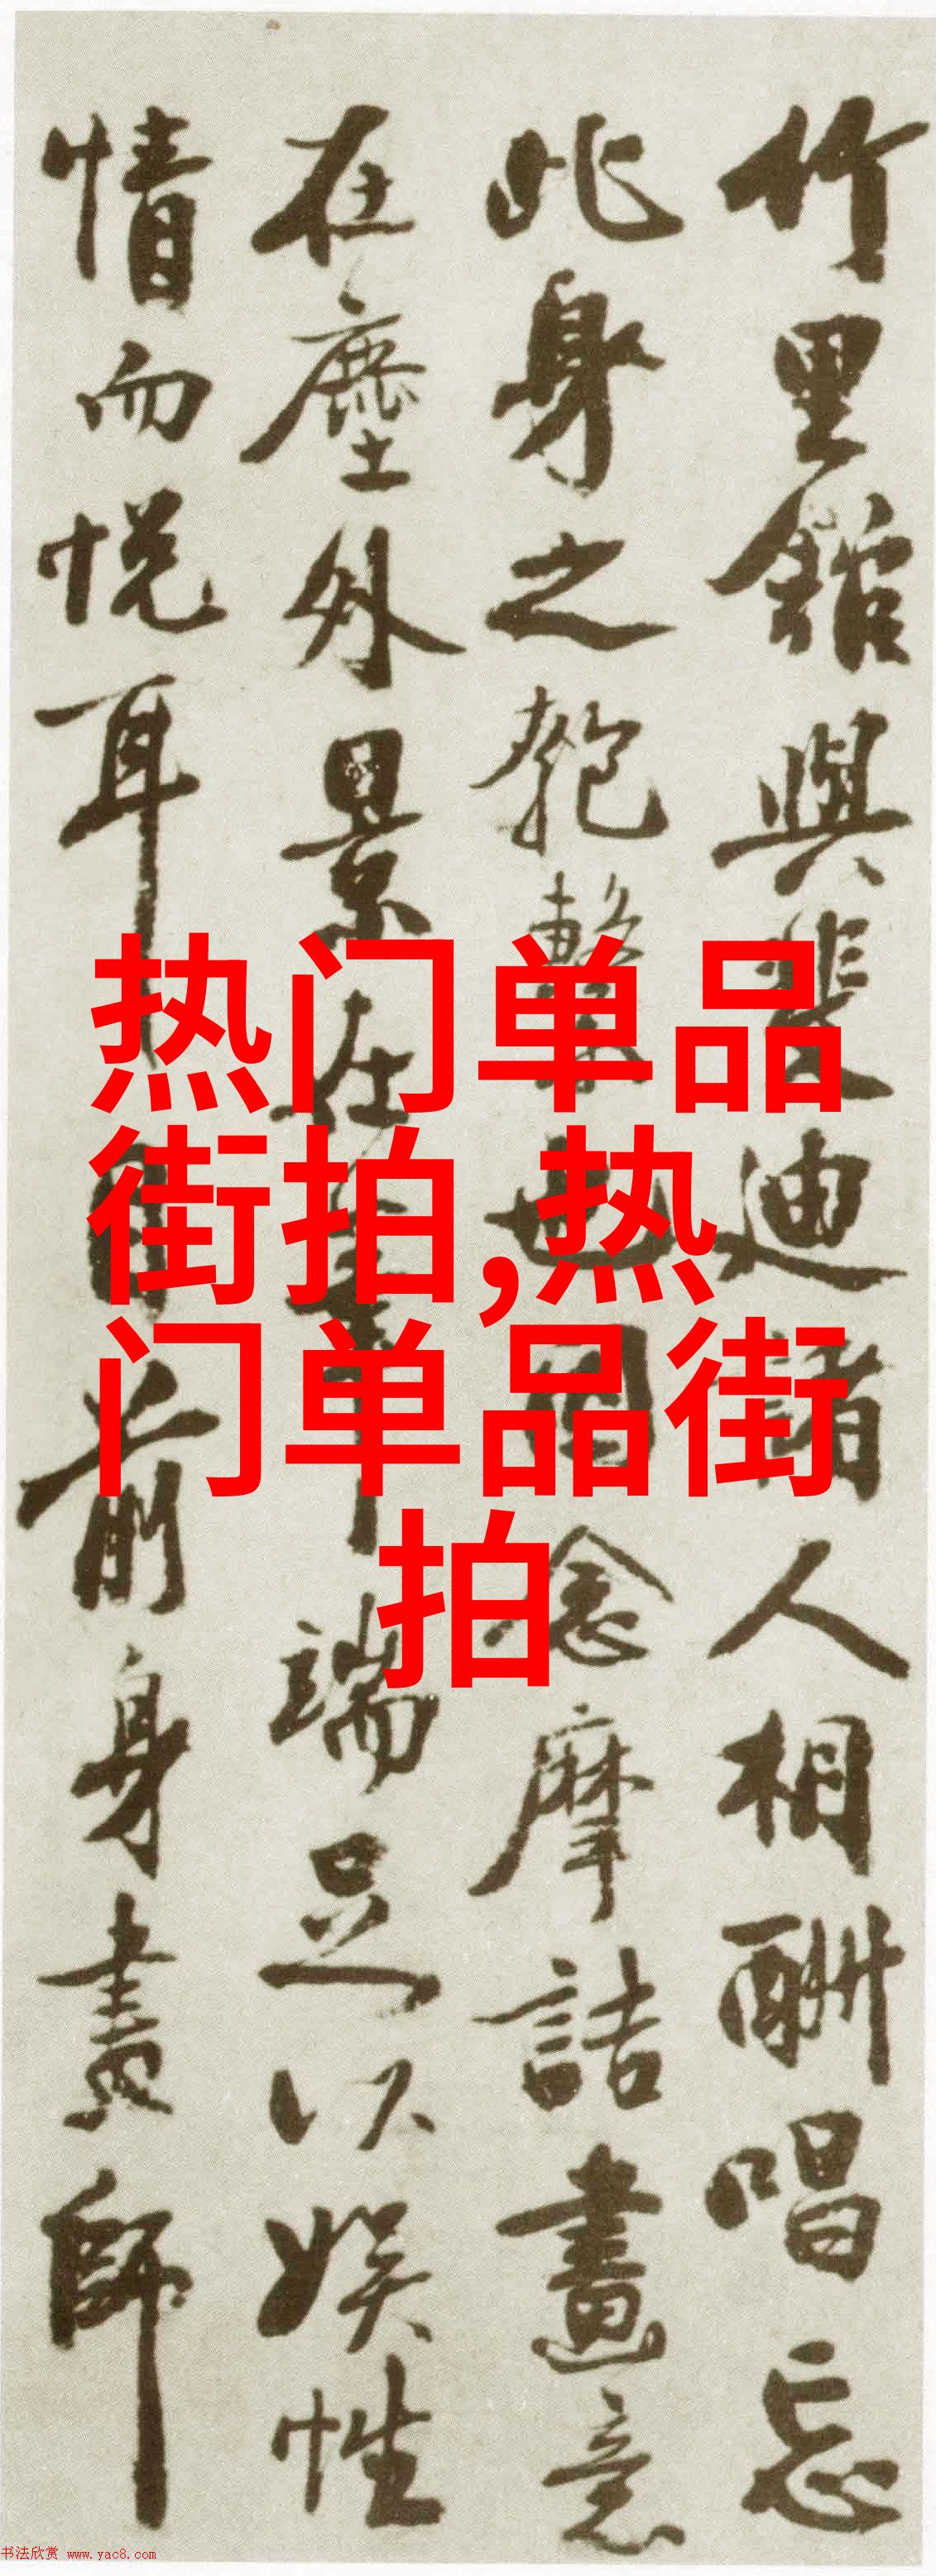 竹里館與裴迪諸人相酬唱忘
此身之匏繫也因念摩詰畫意
在塵外景在筆端足以娛性
情而悅耳目前身畫師
热门单品
街拍,热
门单品街
拍
书法欣赏 www.yac8.com